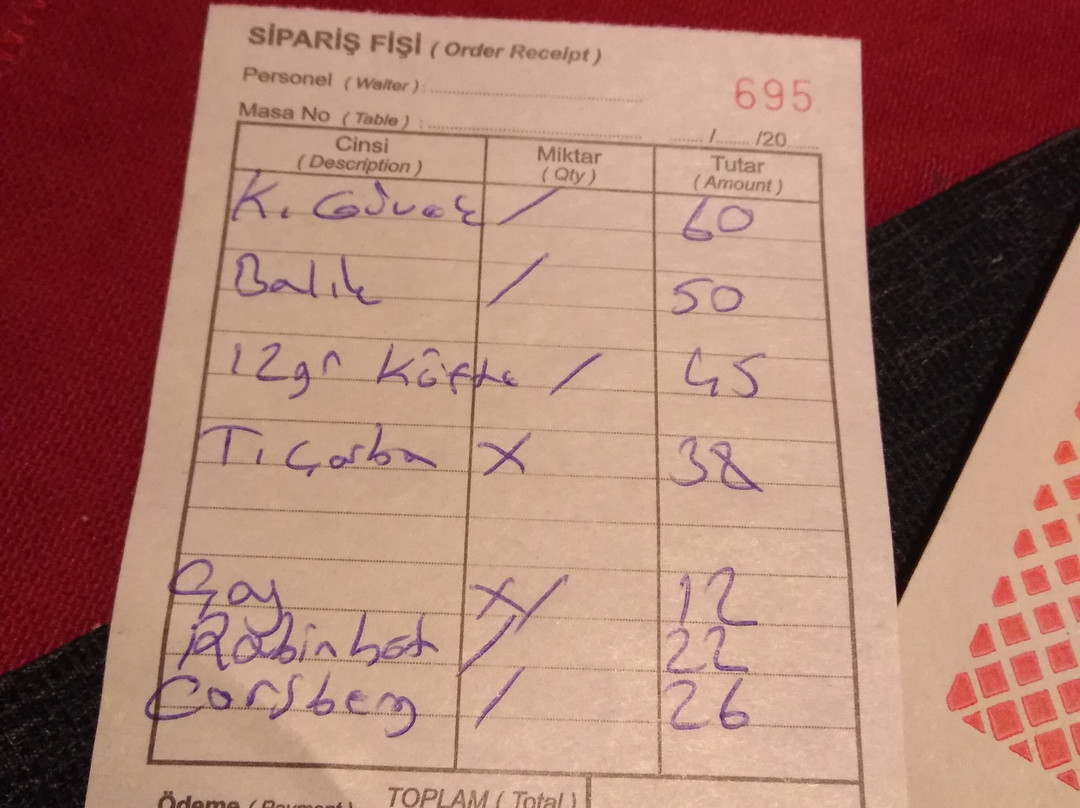 SİPARİŞ FİŞİ ( Order Receipt )
Personel ( Waiter ) :
695
Masa No ( Table ) :
/ /20
Cinsi Miktar Tutar
( Description ) ( Qty ) ( Amount )
K. Güveç / 60
Balık / 50
12gr Köfte / 45
T. Çorba X 38
Çay X/ 12
/ 22
Carsberg / 26
Ödeme ( Payment ) TOPLAM ( Total )